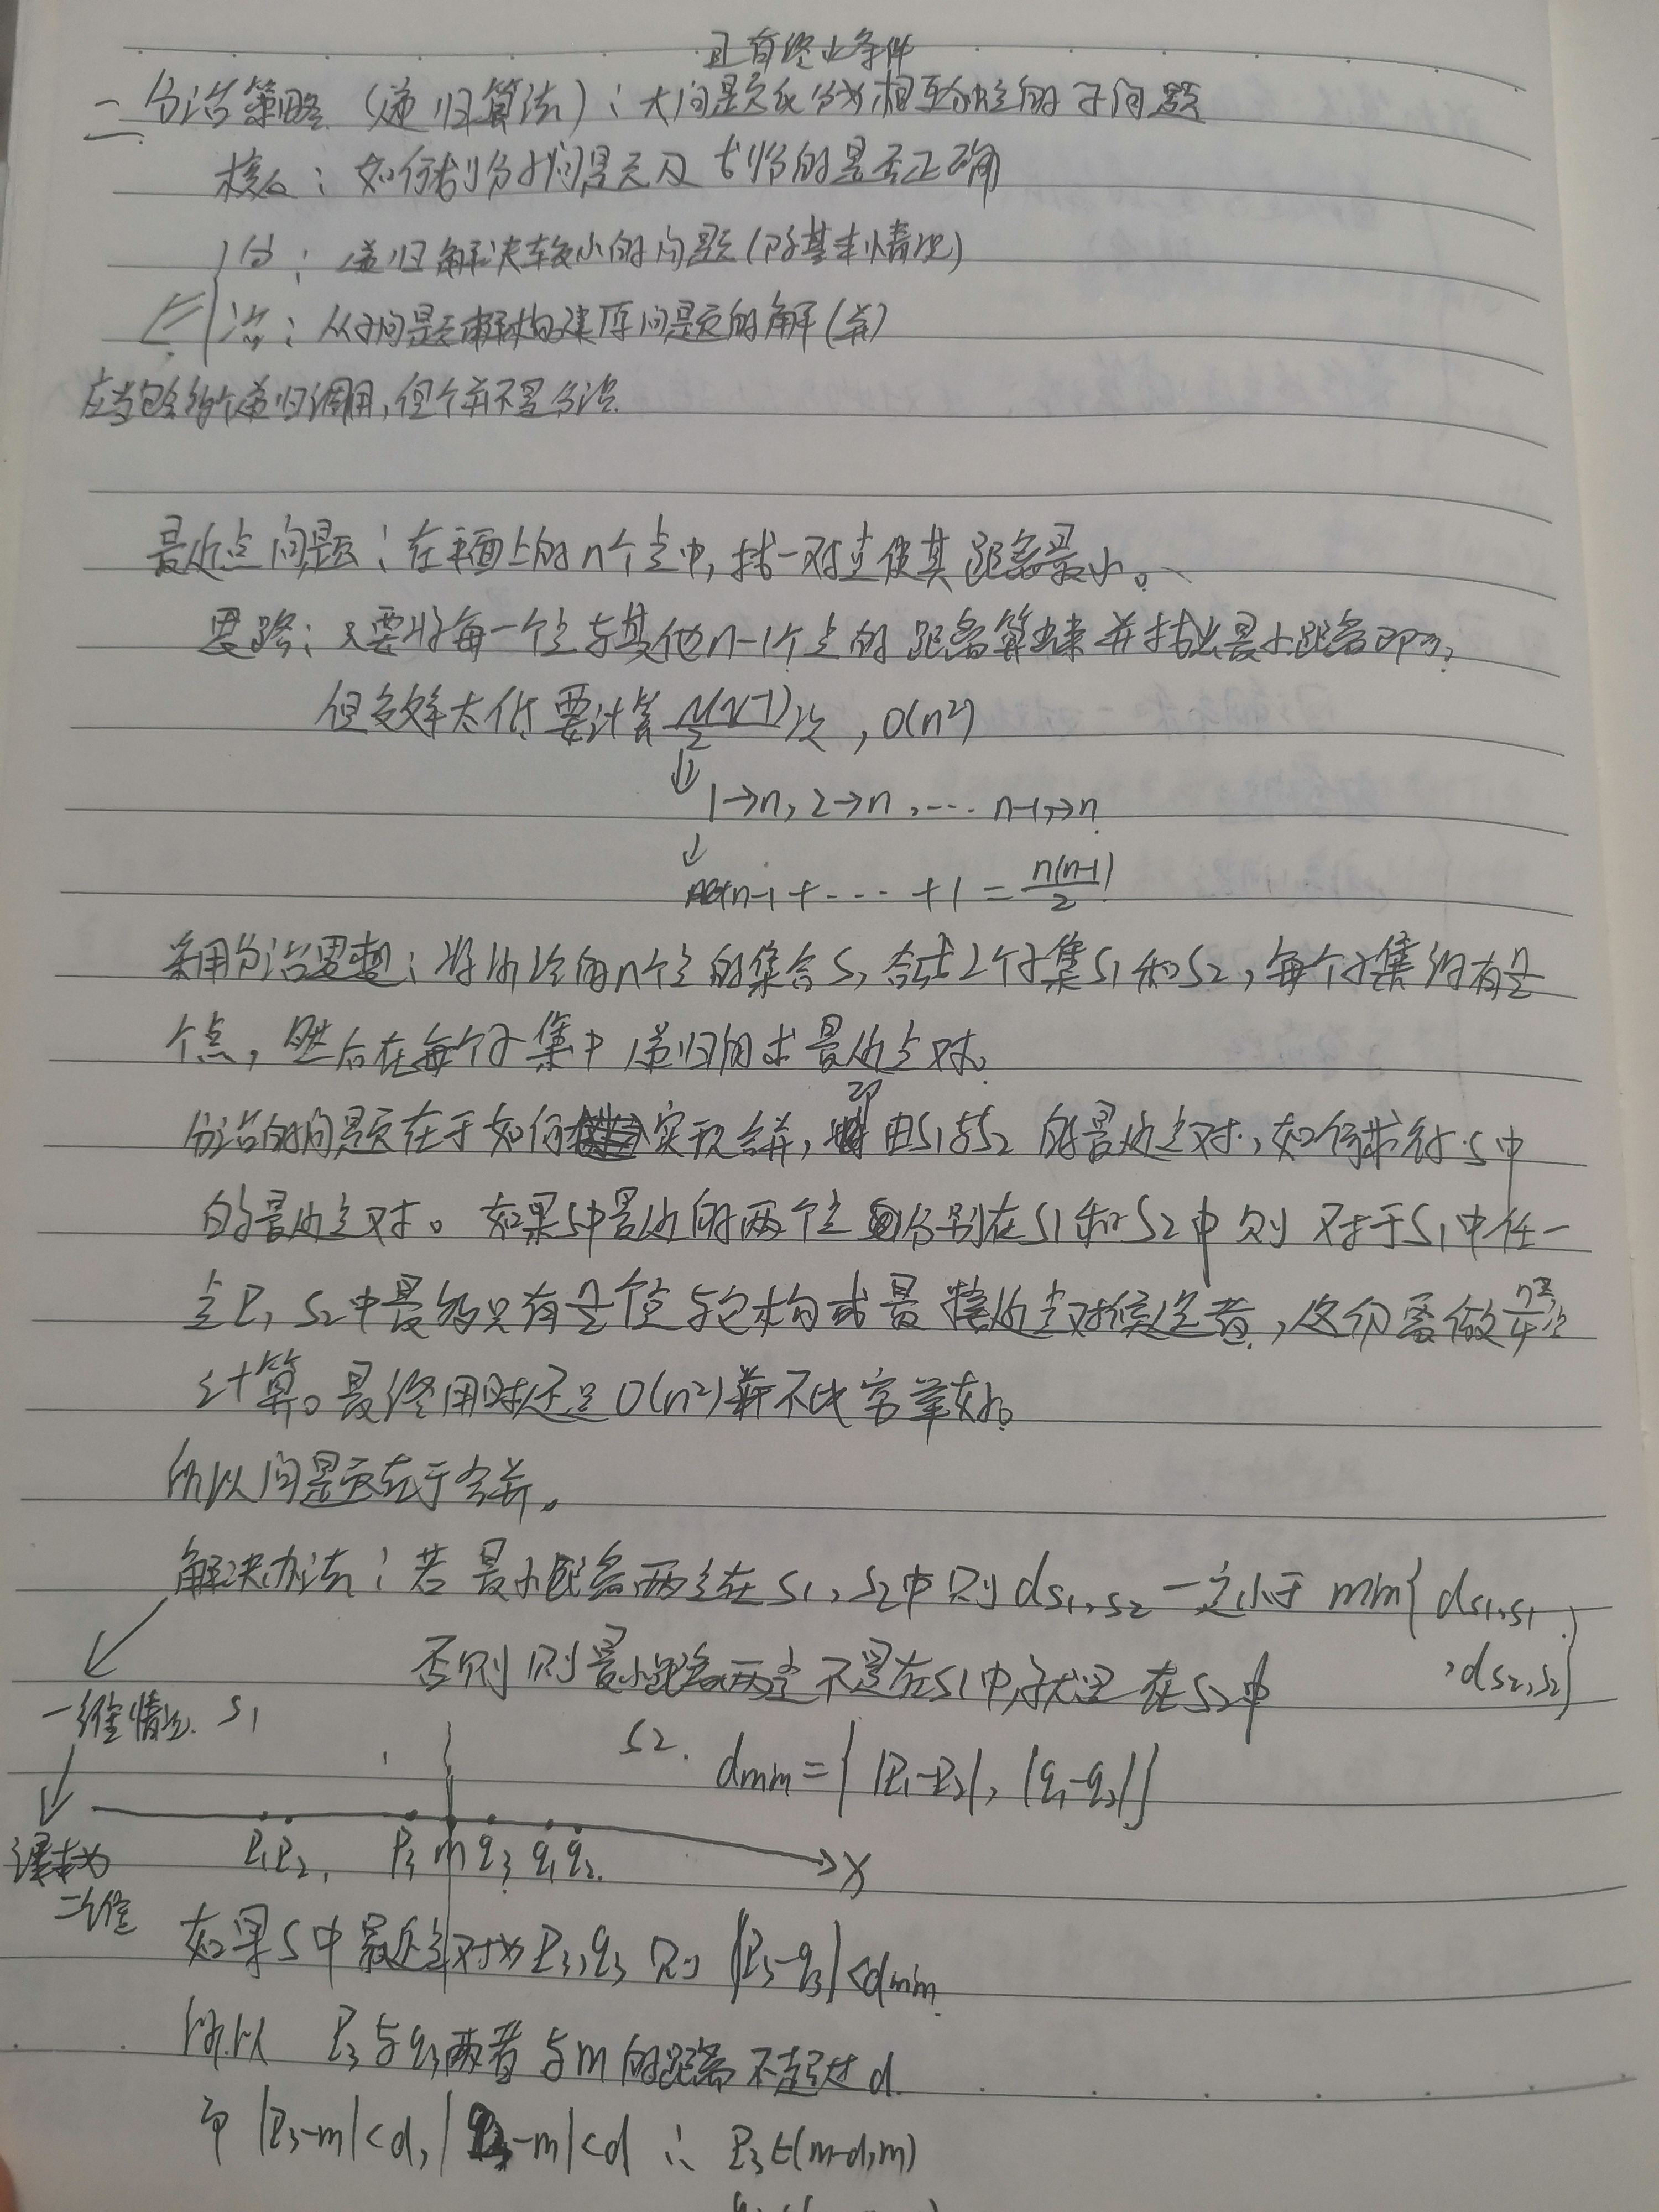 且有终止条件
二 分治策略(递归算法):大问题化分为相互独立的子问题
核心:如何划分子问题及 划分的是否正确
分:递归解决较小的问题(除基本情况)
治:从子问题解构建原问题的解(并)
应当包含多个递归调用,但个并不是分治.
最近点问题:在平面上的n个点中,找一对点使其距离最小。
思路:只要将每一个点与其他n-1个点的距离算出来并找出最小距离即可,
但效率太低 要计算 n(n-1)/2 次,O(n²)
⇓
1→n, 2→n, ... n-1→n
↓
n-1 + ... + 1 = n(n-1)/2
采用分治思想:将所给的n个点的集合S,分成2个子集S1和S2,每个子集约有n/2
个点,然后在每个子集中递归的求最近点对。
分治的问题在于如何实现合并,即由S1与S2的最近点对,如何求得S中
的最近点对。如果S中最近的两个点分别在S1和S2中则对于S1中任一
点P,S2中最多只有n/2个点与它构成最接近点对候选者,这仍需做n²/4次
计算。最终用时还是O(n²)并不比穷举好。
所以问题在于合并。
解决办法:若最小距离两点在S1,S2中则 dS1,S2 一定小于 min{dS1,S1
,dS2,S2}
否则 则最小距离两点不是在S1中就是在S2中
一维情况. S1
S2. dmin={|P1-P2|, |q1-q2|}
P1 P2, P3 m q3 q1 q2. X
课本为
二维
如果S中最近点对为P3,q3 则 |P3-q3|<dmin
所以 P3与q3两者与m的距离不超过d.
即 |P3-m|<d, |q3-m|<d ∴ P3∈(m-d,m)